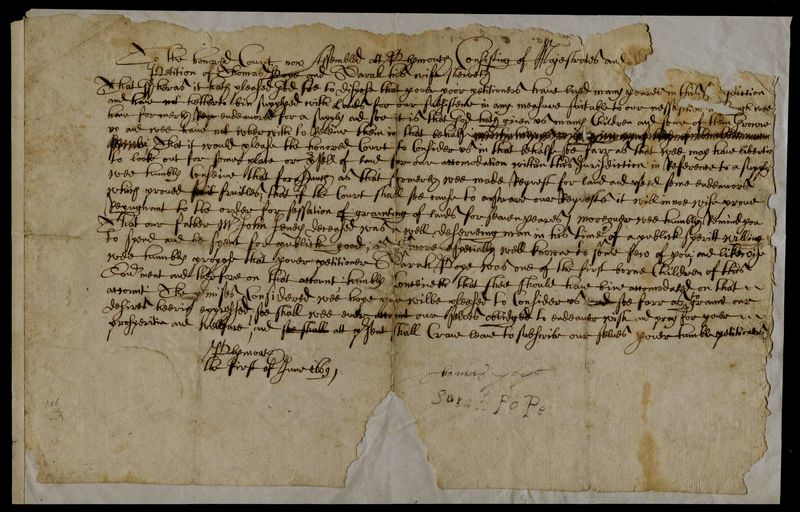 To the honored Court now Assembled att Plymouth Consisting of Majestrates and
Petition of Thomas Pope and Sarah his wife sheweth
That Wheras it hath pleased God soe to dispose that your poor petitioners have lived many yeares in this Jurisdiction
and have not hitherto bin supplyed with Lands for our subsistence in any measure suitable to our nessesitie though wee
have formerly used endeavors for a supply and soe it is that God hath given us many Children and some of them Growne
up and wee have not wherwith to Releive them in that behalf
That it would please the honored Court to Consider us in that behalfe soe farr as that wee may have libertie
to look out for some place or psell of land for our accomodation within this Jurisdiction in Reference to a supply
wee humbly Conceive that forasmuch as that formerly wee made Request for land and used some endeavors
which proved fruitles, that if the Court shall see cause to answare our Requests it will in noe wise prove
Repugnant to the order for sessation of granting of lands for seaven yeares; moreover wee humbly Remind you
that our father Mr John Jenney deceased was a well deserveing man in his time, of a publick speritt willing
to spend and be spent for publick good; as is more especially well knowne to some few of you and likewise
wee humbly propose that your petitioner Sarah Pope was one of the first borne Children of this
and therfore on that accoumt humbly conceiveth that shee should have bine accomodated on that
accoumt The Considered wee hope you wilbe pleased to Consider us and soe farr as Graunt our
desires heerin expressed soe shall wee ever accoumt our selves obliged to endeavor wish and pray for your
prosperitie and wellfare, and att psent shall Crave leave to subscribe our selves your humble petitioners
Plymouth
the first of June 1669
Thomas Pope
Sarah PoPe